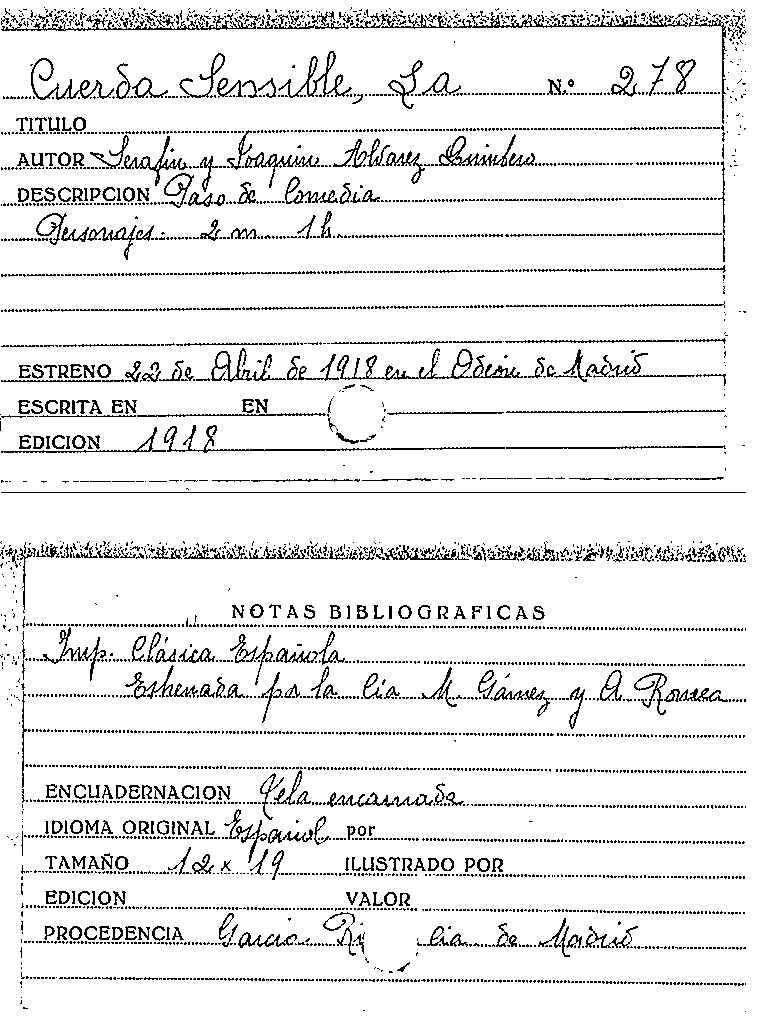 Cuerda Sensible, La N.º 278
TITULO
AUTOR Serafin y Joaquin Alvarez Quintero
DESCRIPCION Paso de Comedia
Personajes. 2 m. 1 h.
ESTRENO 22 de Abril de 1918 en el Odeón de Madrid
ESCRITA EN EN
EDICION 1918
NOTAS BIBLIOGRAFICAS
Imp. Clásica Española
Estrenada por la Cia M. Gámez y A. Romea
ENCUADERNACION Tela encarnada
IDIOMA ORIGINAL Español por
TAMAÑO 12 x 19 ILUSTRADO POR
EDICION VALOR
PROCEDENCIA Garcia cia de Madrid